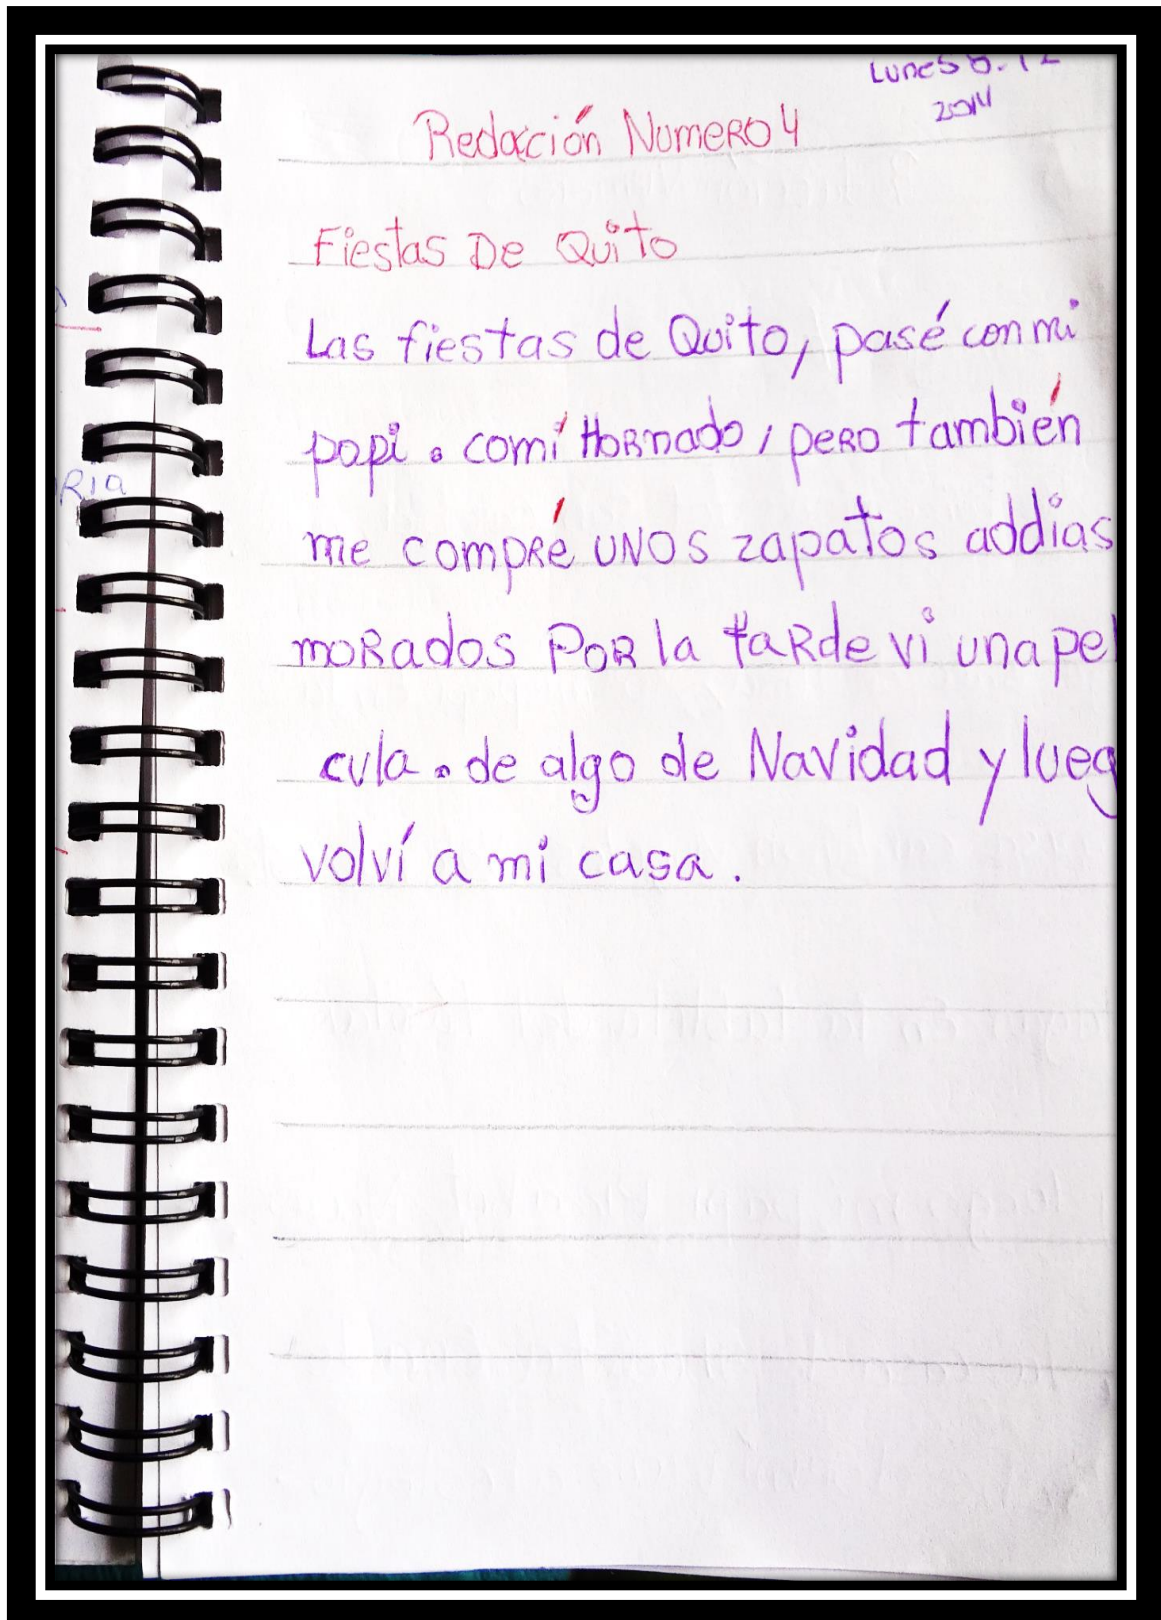 Lunes 8.12
2014
Redacción Numero 4
Fiestas De Quito
Las fiestas de Quito, pasé con mi
papi. comí Hornado, pero también
me compré unos zapatos addias
morados Por la tarde vi una pel
cula. de algo de Navidad y lueg
volví a mi casa.
RIA